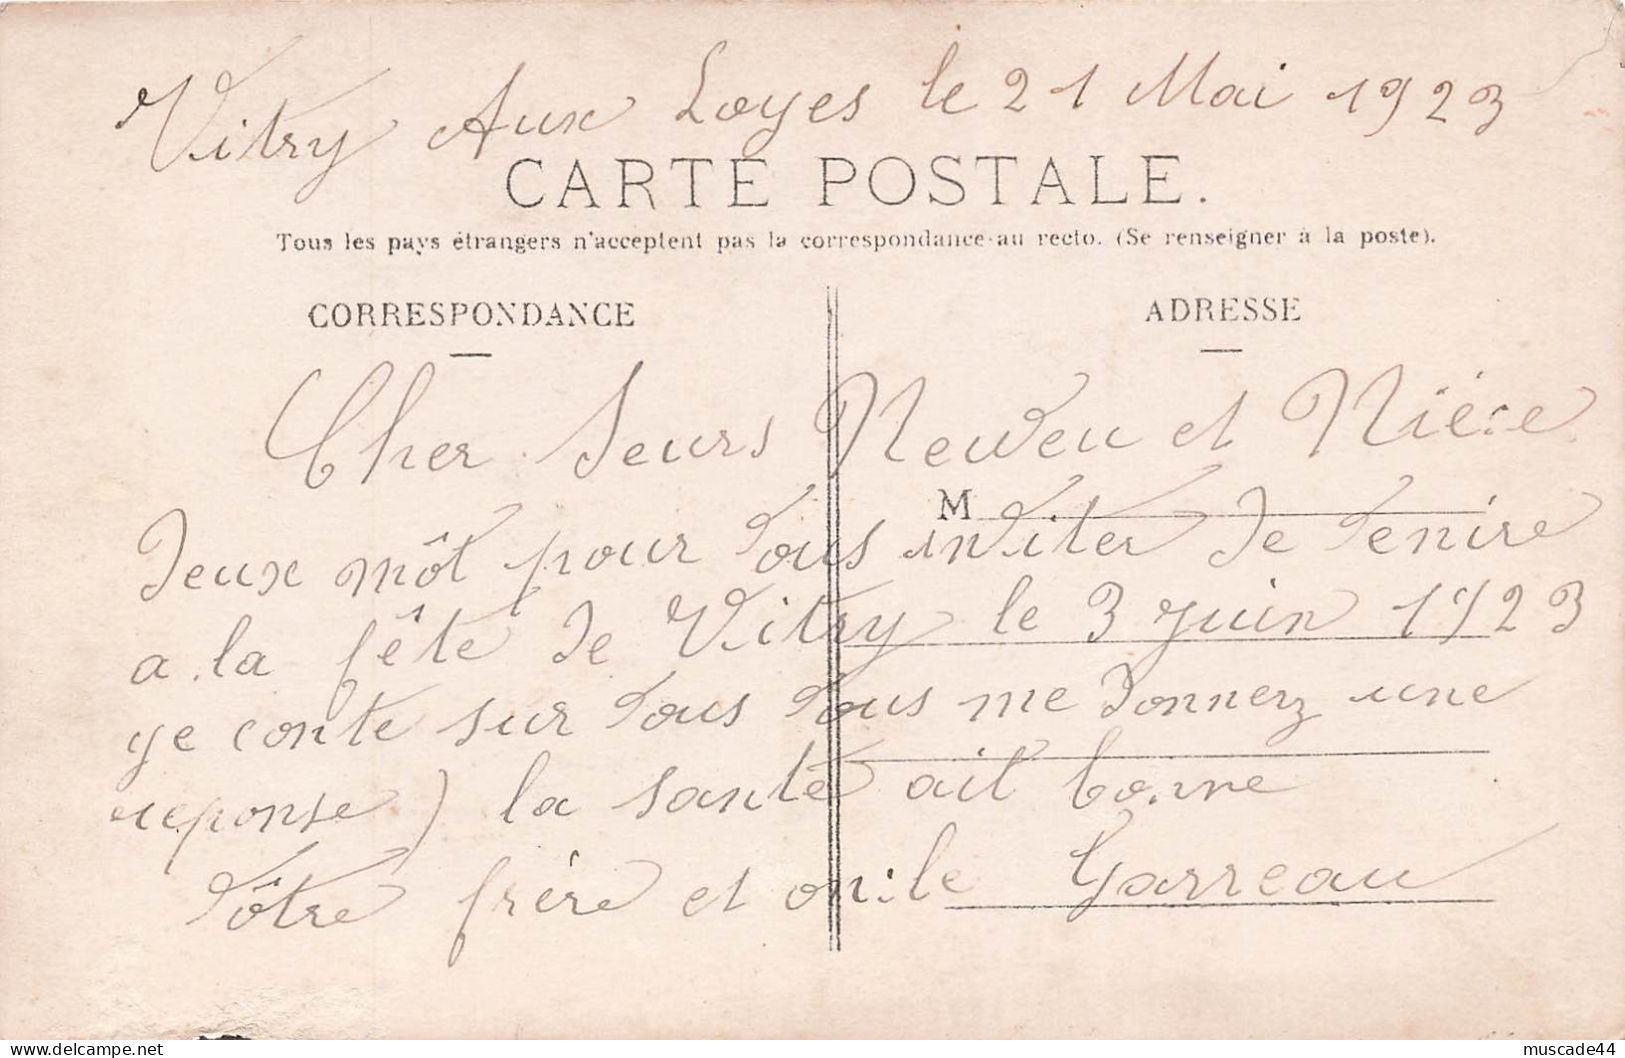 Vitry Aux Loyes le 21 Mai 1923
CARTE POSTALE.
Tous les pays étrangers n'acceptent pas la correspondance au recto. (Se renseigner à la poste).
CORRESPONDANCE
ADRESSE
Cher Seurs Neveu et Nièce
M
Deux môt pour vous inviter de venire
a la fête de Vitry le 3 juin 1923
ye conte sur vous vous me donnerz une
reponse) la santé ait bonne
vôtre frère et oncle Garreau
muscade44